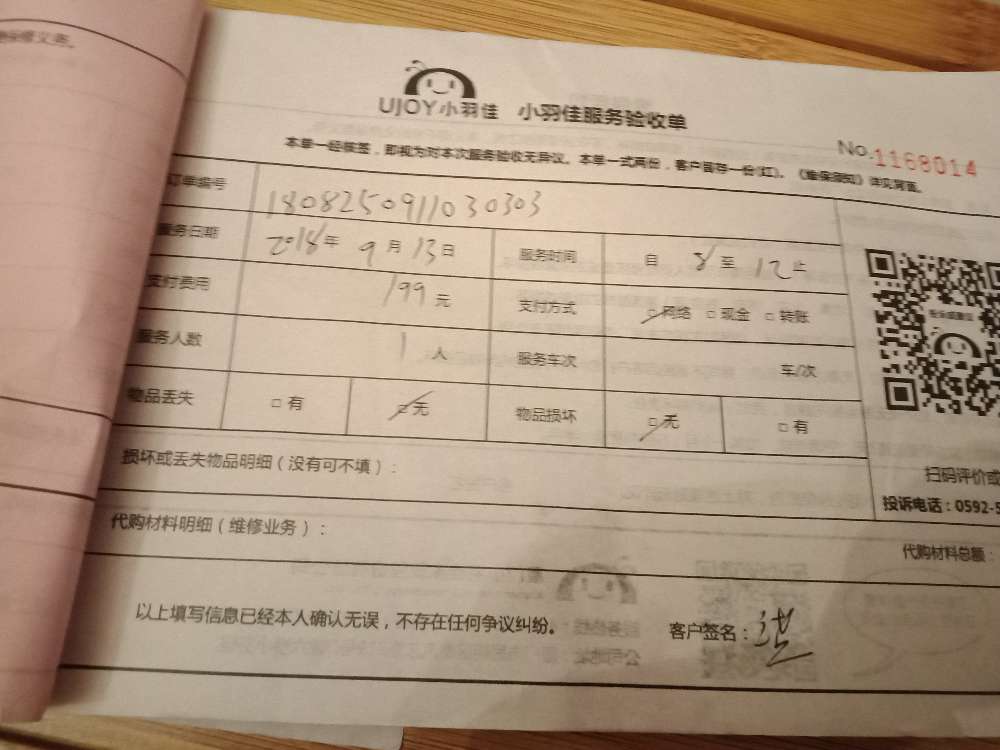 修义务。
UJOY小羽佳 小羽佳服务验收单
No.1168014
本单一经核签，即视为对本次服务验收无异议。本单一式两份，客户留存一份(红)。《维保须知》详见背面。
订单编号 1808250911030303
服务日期 2018年 9月 13日 服务时间 自 8 至 12 止
支付费用 199元 支付方式 ☑网络 □现金 □转账
服务人数 1人 服务车次 车/次
物品丢失 □有 ☑无 物品损坏 ☑无 □有
损坏或丢失物品明细（没有可不填）：
扫码评价或
投诉电话：0592-5
代购材料明细（维修业务）：
代购材料总额：
以上填写信息已经本人确认无误，不存在任何争议纠纷。 客户签名：